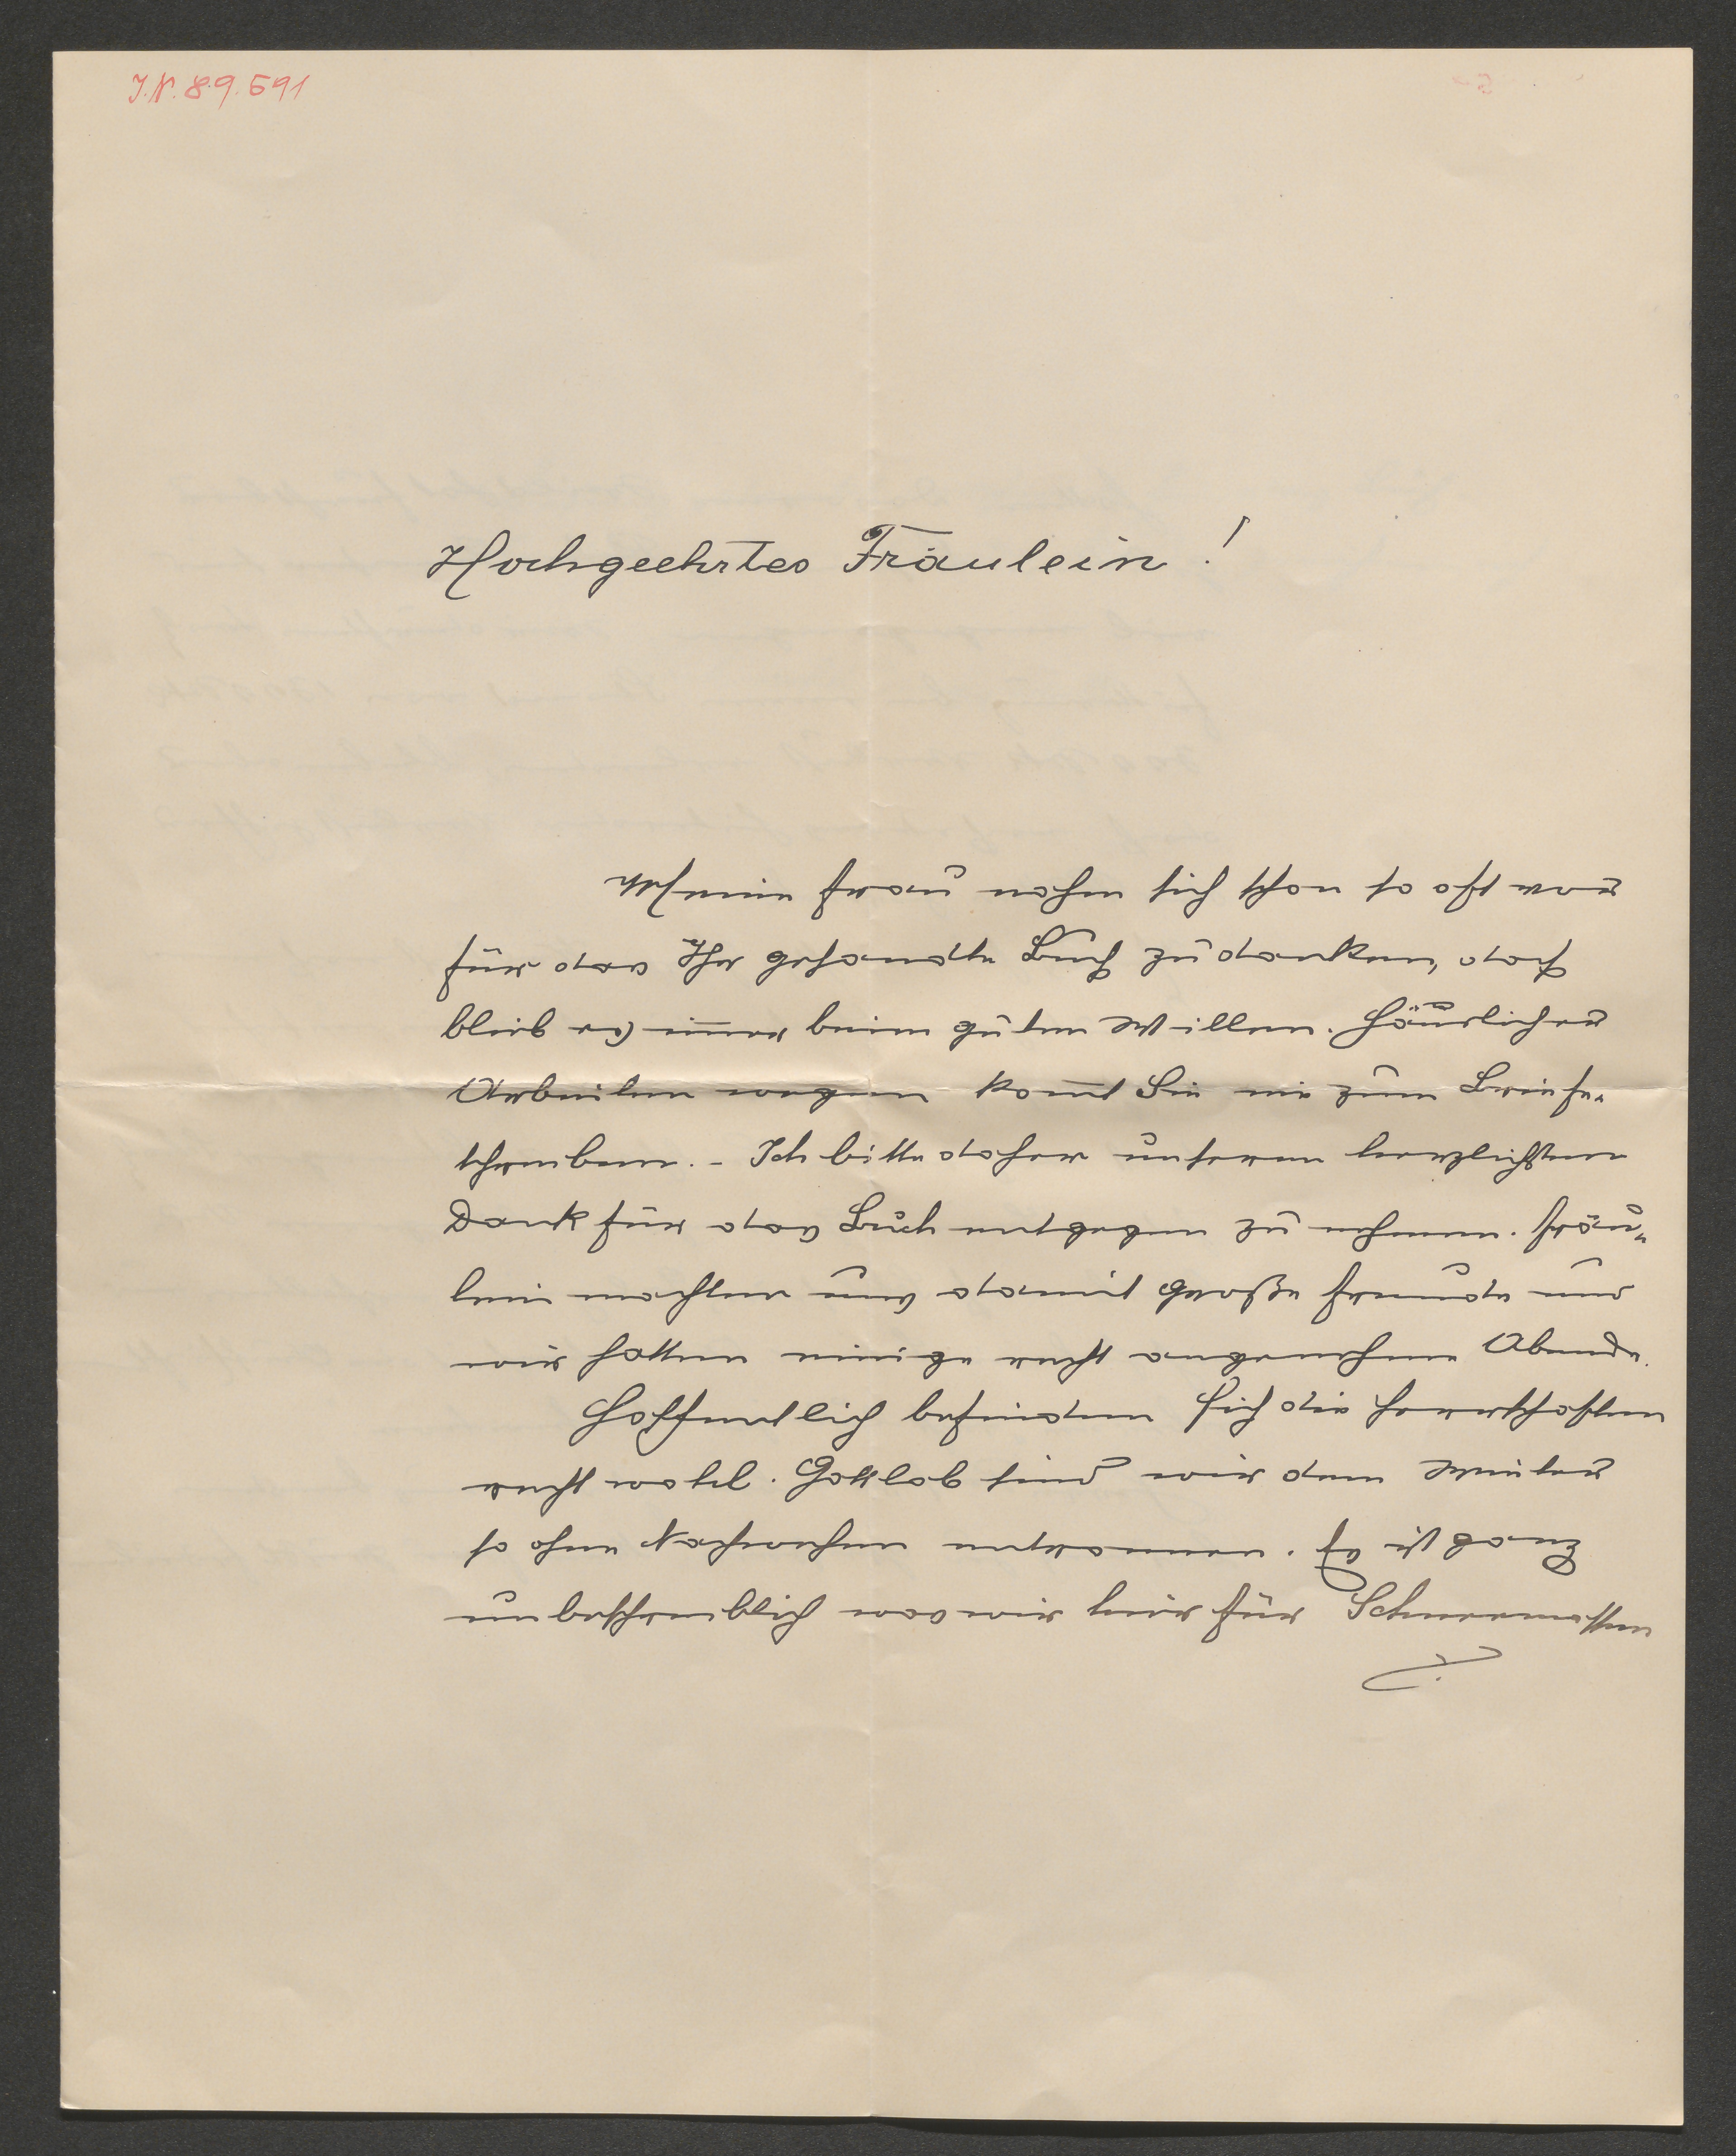 J.N. 89.591
Hochgeehrtes Fräulein!
Meine Frau nahm sich schon so oft vor
für das Ihr gesandte Buch zu danken, doch
blieb es im̄er beim guten Willen. Häuslicher
Arbeiten wegen kom̄t Sie nie zum Briefe-
schreiben. - Ich bitte daher unseren herzlichsten
Dank für das Buch entgegen zu nehmen. Fräu-
lein machten uns damit große Freude und
wir hatten einige recht angenehme Abende.
Hoffentlich befinden sich die Herrschaften
recht wohl. Gottlob sind wir dem Winter
so ohne Nachwehen entronnen. Es ist ganz
unbeschreiblich was wir hier für Schneemassen